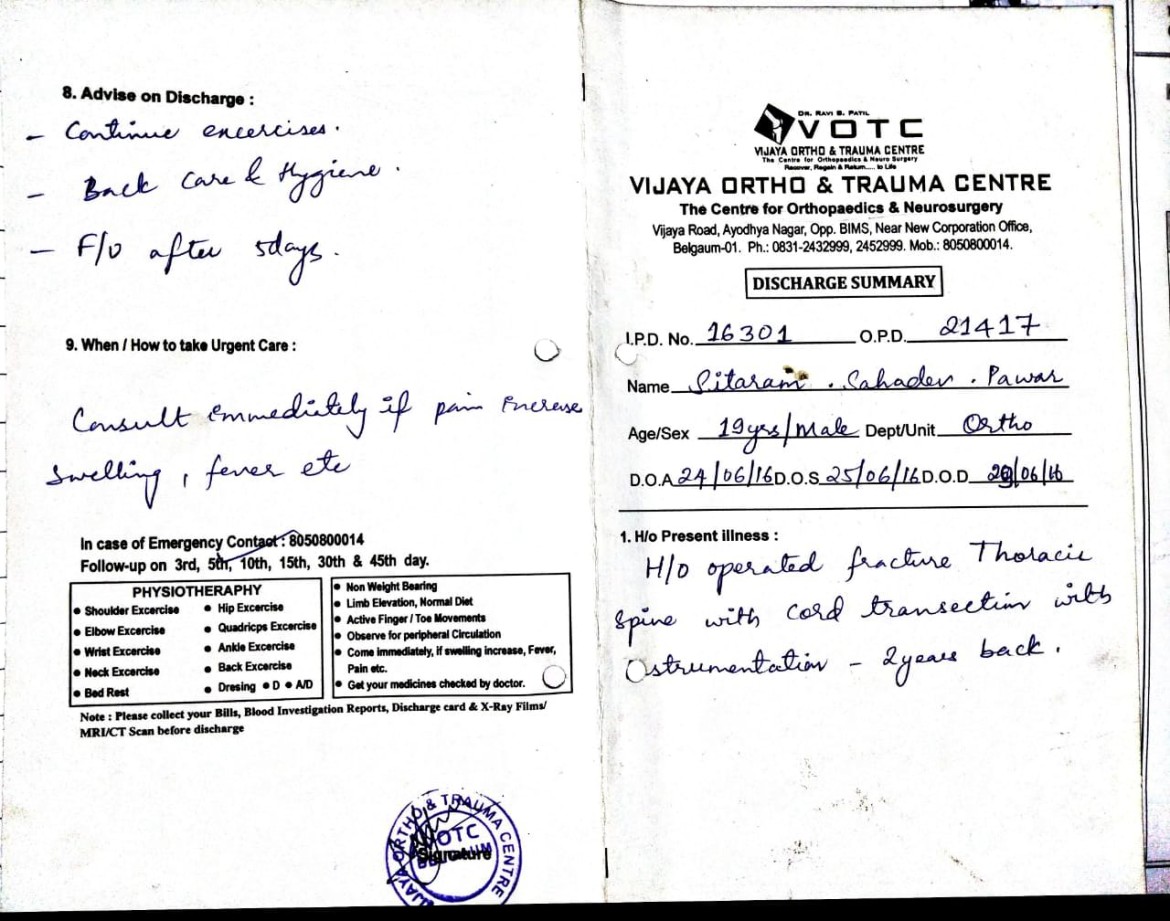 8. Advise on Discharge :
- Continue encercises.
- Back Care & Hygiene.
- F/U after 5days.
9. When / How to take Urgent Care :
Consult immediately if pain increase
swelling, fever etc
In case of Emergency Contact : 8050800014
Follow-up on 3rd, 5th, 10th, 15th, 30th & 45th day.
PHYSIOTHERAPHY
• Shoulder Excercise
• Elbow Excercise
• Wrist Excercise
• Neck Excercise
• Bed Rest
• Hip Excercise
• Quadricps Excercise
• Ankle Excercise
• Back Excercise
• Dresing • D • A/D
• Non Weight Bearing
• Limb Elevation, Normal Diet
• Active Finger / Toe Movements
• Observe for peripheral Circulation
• Come immediately, if swelling increase, Fever,
Pain etc.
• Get your medicines checked by doctor.
Note : Please collect your Bills, Blood Investigation Reports, Discharge card & X-Ray Films/
MRI/CT Scan before discharge
VIJAYA ORTHO & TRAUMA CENTRE
VOTC
BELGAUM
Signature
DR. RAVI B. PATIL
VOTC
VIJAYA ORTHO & TRAUMA CENTRE
The Centre for Orthopaedics & Neuro Surgery
Recover, Regain & Return.... to Life
VIJAYA ORTHO & TRAUMA CENTRE
The Centre for Orthopaedics & Neurosurgery
Vijaya Road, Ayodhya Nagar, Opp. BIMS, Near New Corporation Office,
Belgaum-01. Ph.: 0831-2432999, 2452999. Mob.: 8050800014.
DISCHARGE SUMMARY
I.P.D. No. 16301 O.P.D. 21417
Name Sitaram . Sahadev . Pawar
Age/Sex 19yrs/Male Dept/Unit Ortho
D.O.A 24/06/16 D.O.S 25/06/16 D.O.D /06/16
1. H/o Present illness :
H/O operated fracture Thoracic
Spine with cord transection with
Ostrumentation - 2years back.